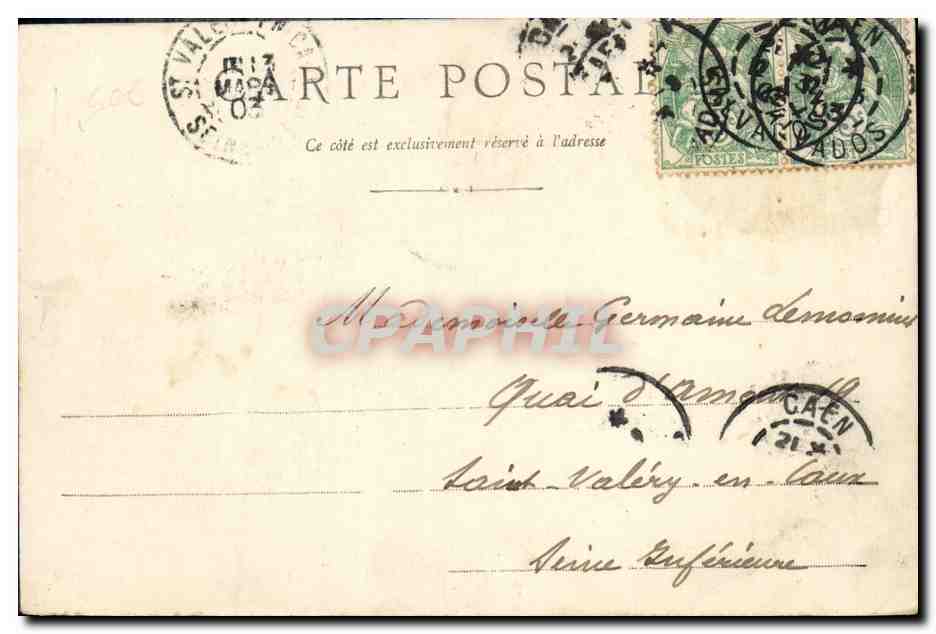 CARTE POSTALE
Ce côté est exclusivement réservé à l'adresse
POSTES
CAEN
CALVADOS
CALVADOS
ST VALERY EN CAUX
MARS
03
CPAPHIL
Mademoiselle Germaine
Quai d'Amont
Saint-Valéry-en-Caux
Seine Inférieure
CAEN
21